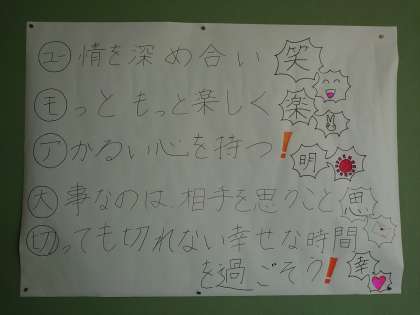 ユー情を深め合い 笑
モっともっと楽しく 楽
アかるい心を持つ! 明
大事なのは、相手を思うこと 思
切っても切れない幸せな時間
を過ごそう! 幸